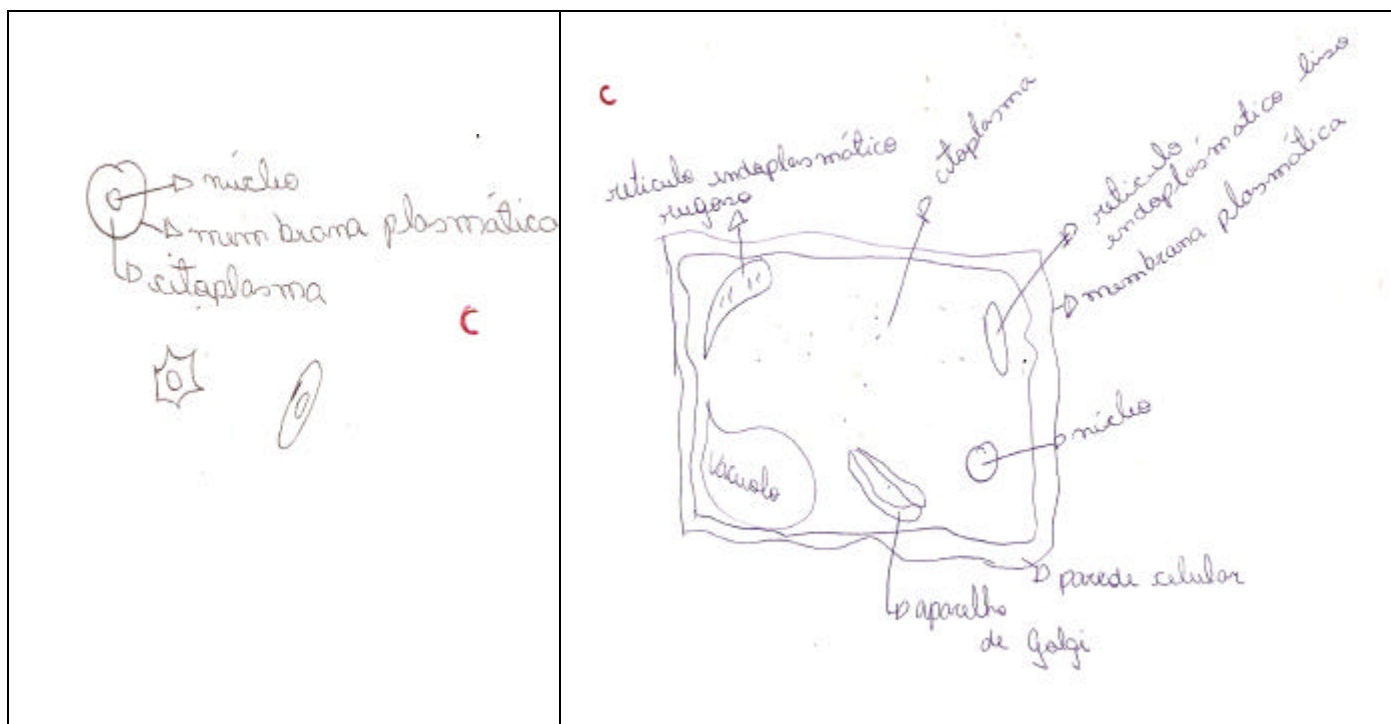 núcleo
membrana plasmático
citoplasma
C
C
retículo endoplasmático
rugoso
citoplasma
retículo
endoplasmático liso
membrana plasmática
Vacuolo
núcleo
parede celular
aparelho
de Golgi